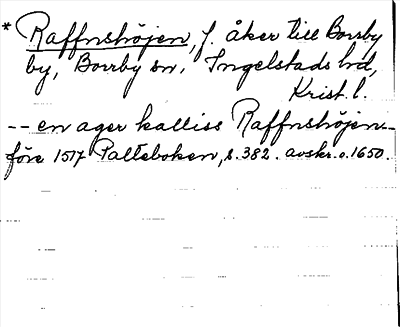 * Raffnshöjen, f. åker till Borrby
by, Borrby sn, Ingelstads hd,
Krist. l.
-- en ager kalliss Raffnshöjen -
före 1517 Palteboken, s. 382. avskr. o. 1650.